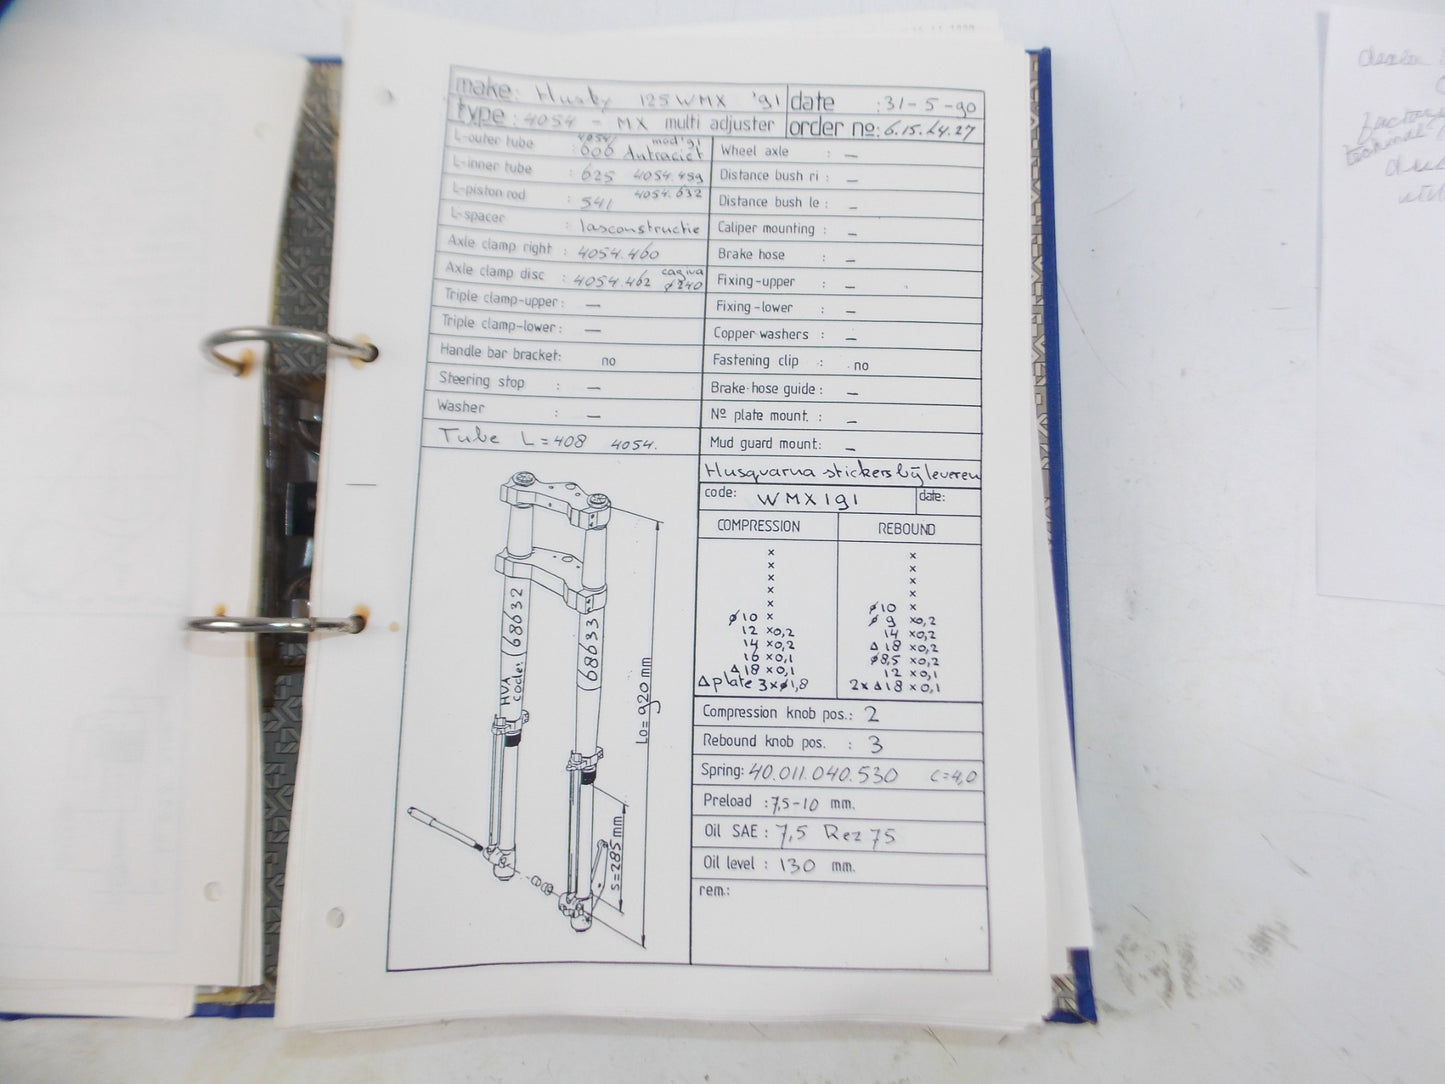 make: Husky 125 WMX '91
date : 31-5-90
type: 4054 - MX multi adjuster
order no: 6.15.24.27
L-outer tube : 600 4054/ mod '91 Antraciet
L-inner tube : 625 4054.459
L-piston rod : 541 4054.632
L-spacer : lasconstructie
Axle clamp right : 4054.460
Axle clamp disc : 4054.462 cagiva ø240
Triple clamp-upper : —
Triple clamp-lower : —
Handle bar bracket: no
Steering stop : —
Washer : —
Tube L=408 4054.
Wheel axle : —
Distance bush ri : —
Distance bush le : —
Caliper mounting : —
Brake hose : —
Fixing-upper : —
Fixing-lower : —
Copper washers : —
Fastening clip : no
Brake-hose guide : —
Nº plate mount. : —
Mud guard mount: —
Husqvarna stickers bijleveren
code: WMX191
date:
COMPRESSION
x
x
x
x
x
ø10 x
12 x0,2
14 x0,2
16 x0,1
Δ 18 x0,1
Δ plate 3xø1,8
REBOUND
x
x
x
x
ø10 x
ø 9 x0,2
14 x0,2
Δ 18 x0,2
ø8,5 x0,2
12 x0,1
2x Δ18 x0,1
Compression knob pos.: 2
Rebound knob pos. : 3
Spring: 40.011.040.530 C=4,0
Preload : 7,5-10 mm.
Oil SAE : 7,5 Rez 75
Oil level : 130 mm.
rem.:
HVA codes 68632
68633
Lo= 920 mm
S=285 mm